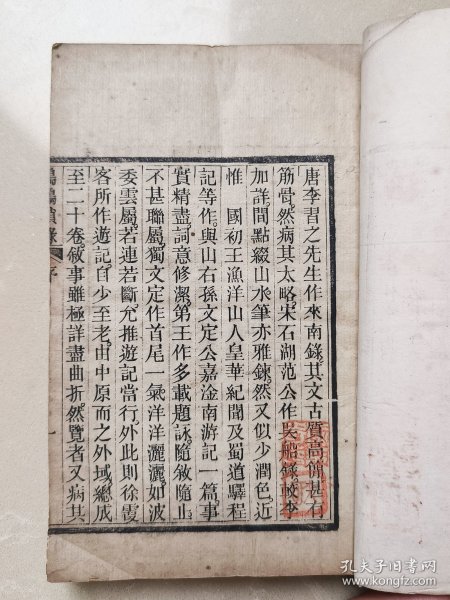 唐李習之先生作來南錄其文古質高簡甚石
筋骨然病其太略宋石湖范公作吳船錄較李
加詳間點綴山水筆亦雅鍊然又似少潤色近
惟　國初王漁洋山人皇華紀聞及蜀道驛程
記等作與山右孫文定公嘉淦南游記一篇事
實精盡詞意修潔第王作多載題詠隨敘隨止
不甚聯屬獨文定作首尾一氣洋洋灑灑如波
委雲屬若連若斷允推遊記當行外此則徐霞
客所作遊記自少至老由中原而之外域總成
至二十卷敘事雖極詳盡曲折然覽者又病其
序
孔夫子旧书网
book.kongfz.com